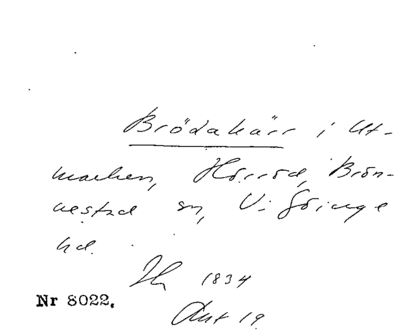 Brödakärr i Ut-
marken, Hörröd, Brön-
nestad sn, V. Göinge
hd.
1834
Nr 8022.
Akt 19